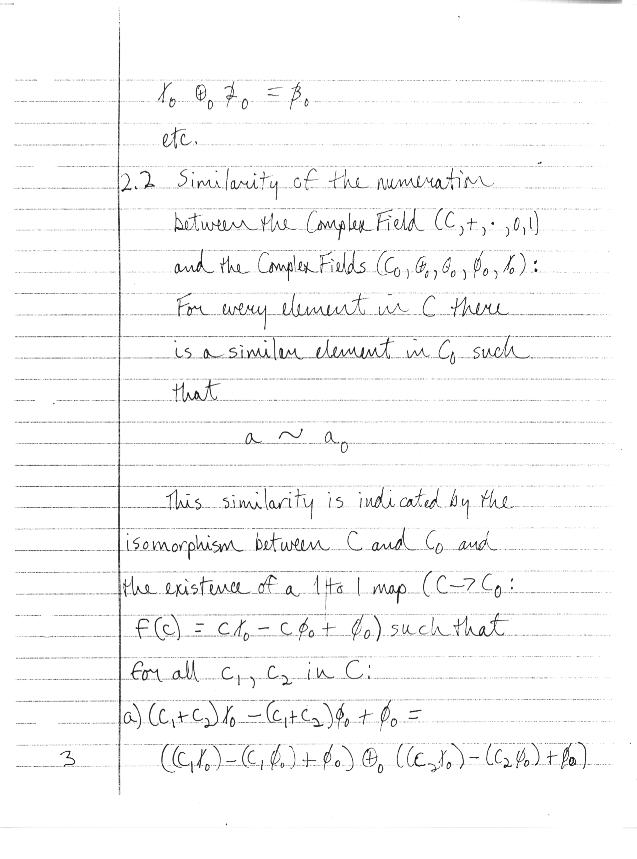 ɣ₀ ⊕₀ ⅎ₀ = β₀
etc.
2.2 Similarity of the numeration
between the Complex Field (C,+,·,0,1)
and the Complex Fields (C₀, ⊕₀, ⊙₀, ∅₀, ɣ₀):
For every element in C there
is a similar element in C₀ such
that
a ~ a₀
This similarity is indicated by the
isomorphism between C and C₀ and
the existence of a 1 to 1 map (C→C₀:
f(c) = cɣ₀ - c∅₀ + ∅₀) such that
for all c₁, c₂ in C:
a) (c₁+c₂)ɣ₀ - (c₁+c₂)∅₀ + ∅₀ =
3 ((c₁ɣ₀) - (c₁∅₀) + ∅₀) ⊕₀ ((c₂ɣ₀) - (c₂∅₀) + ∅₀)